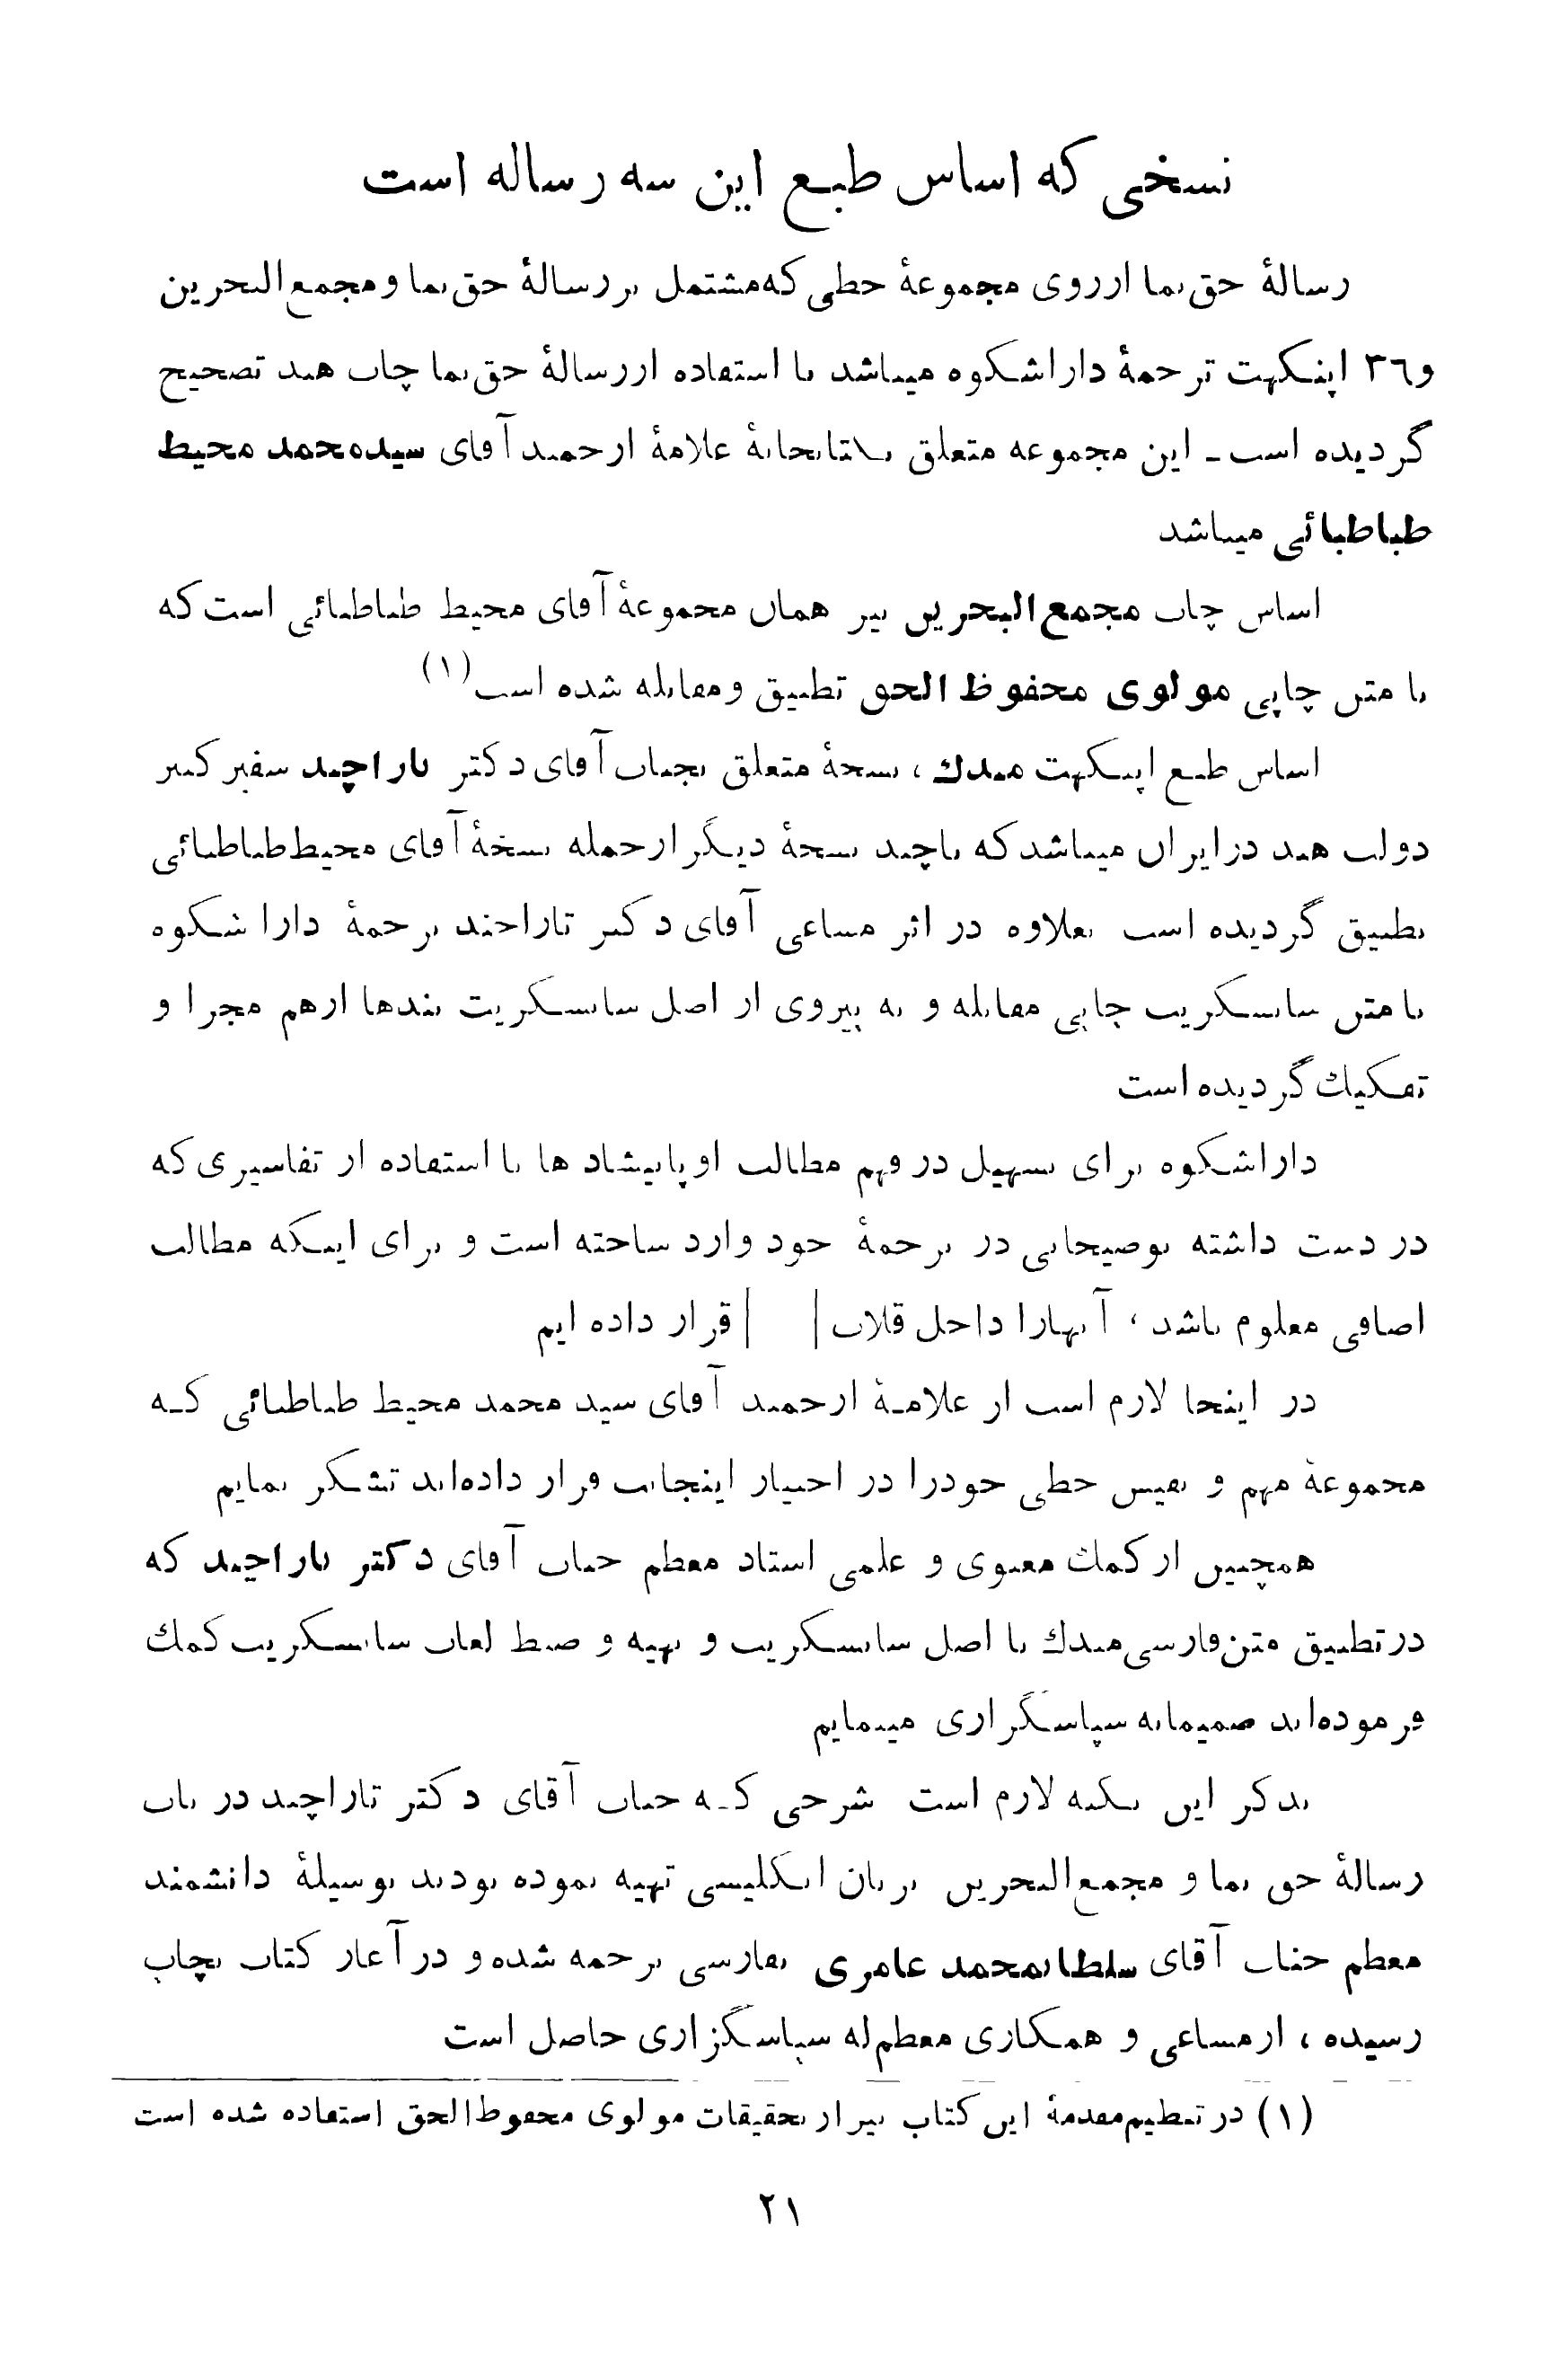 نسخی که اساس طبع این سه رساله است
رسالهٔ حق نما از روی مجموعهٔ خطی که مشتمل بر رسالهٔ حق نما و مجمع البحرین
و ٣٦ اپنکهت ترجمهٔ داراشکوه میباشد با استفاده از رسالهٔ حق نما چاپ هند تصحیح
گردیده است ـ این مجموعه متعلق بکتابخانهٔ علامهٔ ارجمند آقای سیدمحمد محیط
طباطبائی میباشد
اساس چاپ مجمع البحرین نیز همان مجموعهٔ آقای محیط طباطبائی است که
با متن چاپی مولوی محفوظ الحق تطبیق و مقابله شده است (١)
اساس طبع اپنکهت مندك ، نسخهٔ متعلق بجناب آقای دکتر تاراچند سفیر کبیر
دولت هند در ایران میباشد که با چند نسخهٔ دیگر از جمله نسخهٔ آقای محیط طباطبائی
تطبیق گردیده است بعلاوه در اثر مساعی آقای دکتر تاراچند ترجمهٔ دارا شکوه
با متن سانسکریت چاپی مقابله و به پیروی از اصل سانسکریت بندها از هم مجزا و
تفکیك گردیده است
داراشکوه برای تسهیل در فهم مطالب اوپانیشاد ها با استفاده از تفاسیری که
در دست داشته توضیحاتی در ترجمهٔ خود وارد ساخته است و برای اینکه مطالب
اضافی معلوم باشد ، آنها را داخل قلاب [ ] قرار داده ایم
در اینجا لازم است از علامـهٔ ارجمند آقای سید محمد محیط طباطبائی کـه
مجموعهٔ مهم و نفیس خطی خود را در اختیار اینجانب قرار داده‌اند تشکر نمایم
همچنین از کمك معنوی و علمی استاد معظم جناب آقای دکتر تاراچند که
در تطبیق متن فارسی مندك با اصل سانسکریت و تهیه و ضبط لغات سانسکریت کمك
فرموده‌اند صمیمانه سپاسگزاری مینمایم
بذکر این نکته لازم است شرحی کـه جناب آقای دکتر تاراچند در باب
رسالهٔ حق نما و مجمع البحرین بزبان انگلیسی تهیه نموده بودند بوسیلهٔ دانشمند
معظم جناب آقای سلطانمحمد عامری بفارسی ترجمه شده و در آغاز کتاب بچاپ
رسیده ، از مساعی و همکاری معظم له سپاسگزاری حاصل است
(١) در تنظیم مقدمهٔ این کتاب نیز از تحقیقات مولوی محفوظ الحق استفاده شده است
٢١